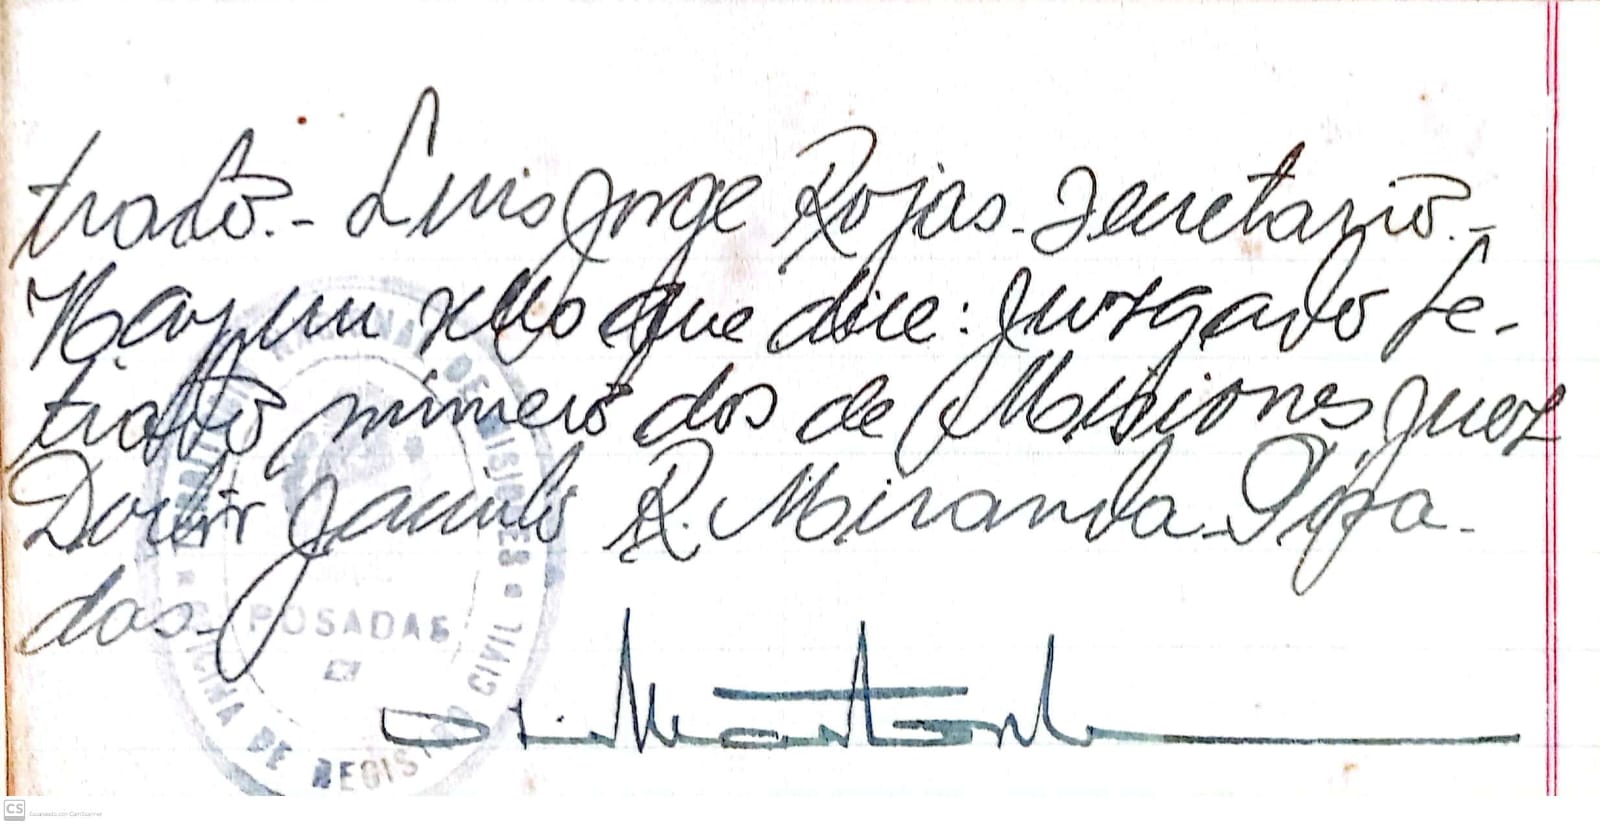 trado.- Luis Jorge Rojas. Secretario.-
Hay un sello que dice: Juzgado Le-
trado número dos de Misiones Juez
Doctor Jacinto R. Miranda Posa-
das.-
POSADAS
OFICINA DE REGISTRO CIVIL
MISIONES
Escaneado con CamScanner